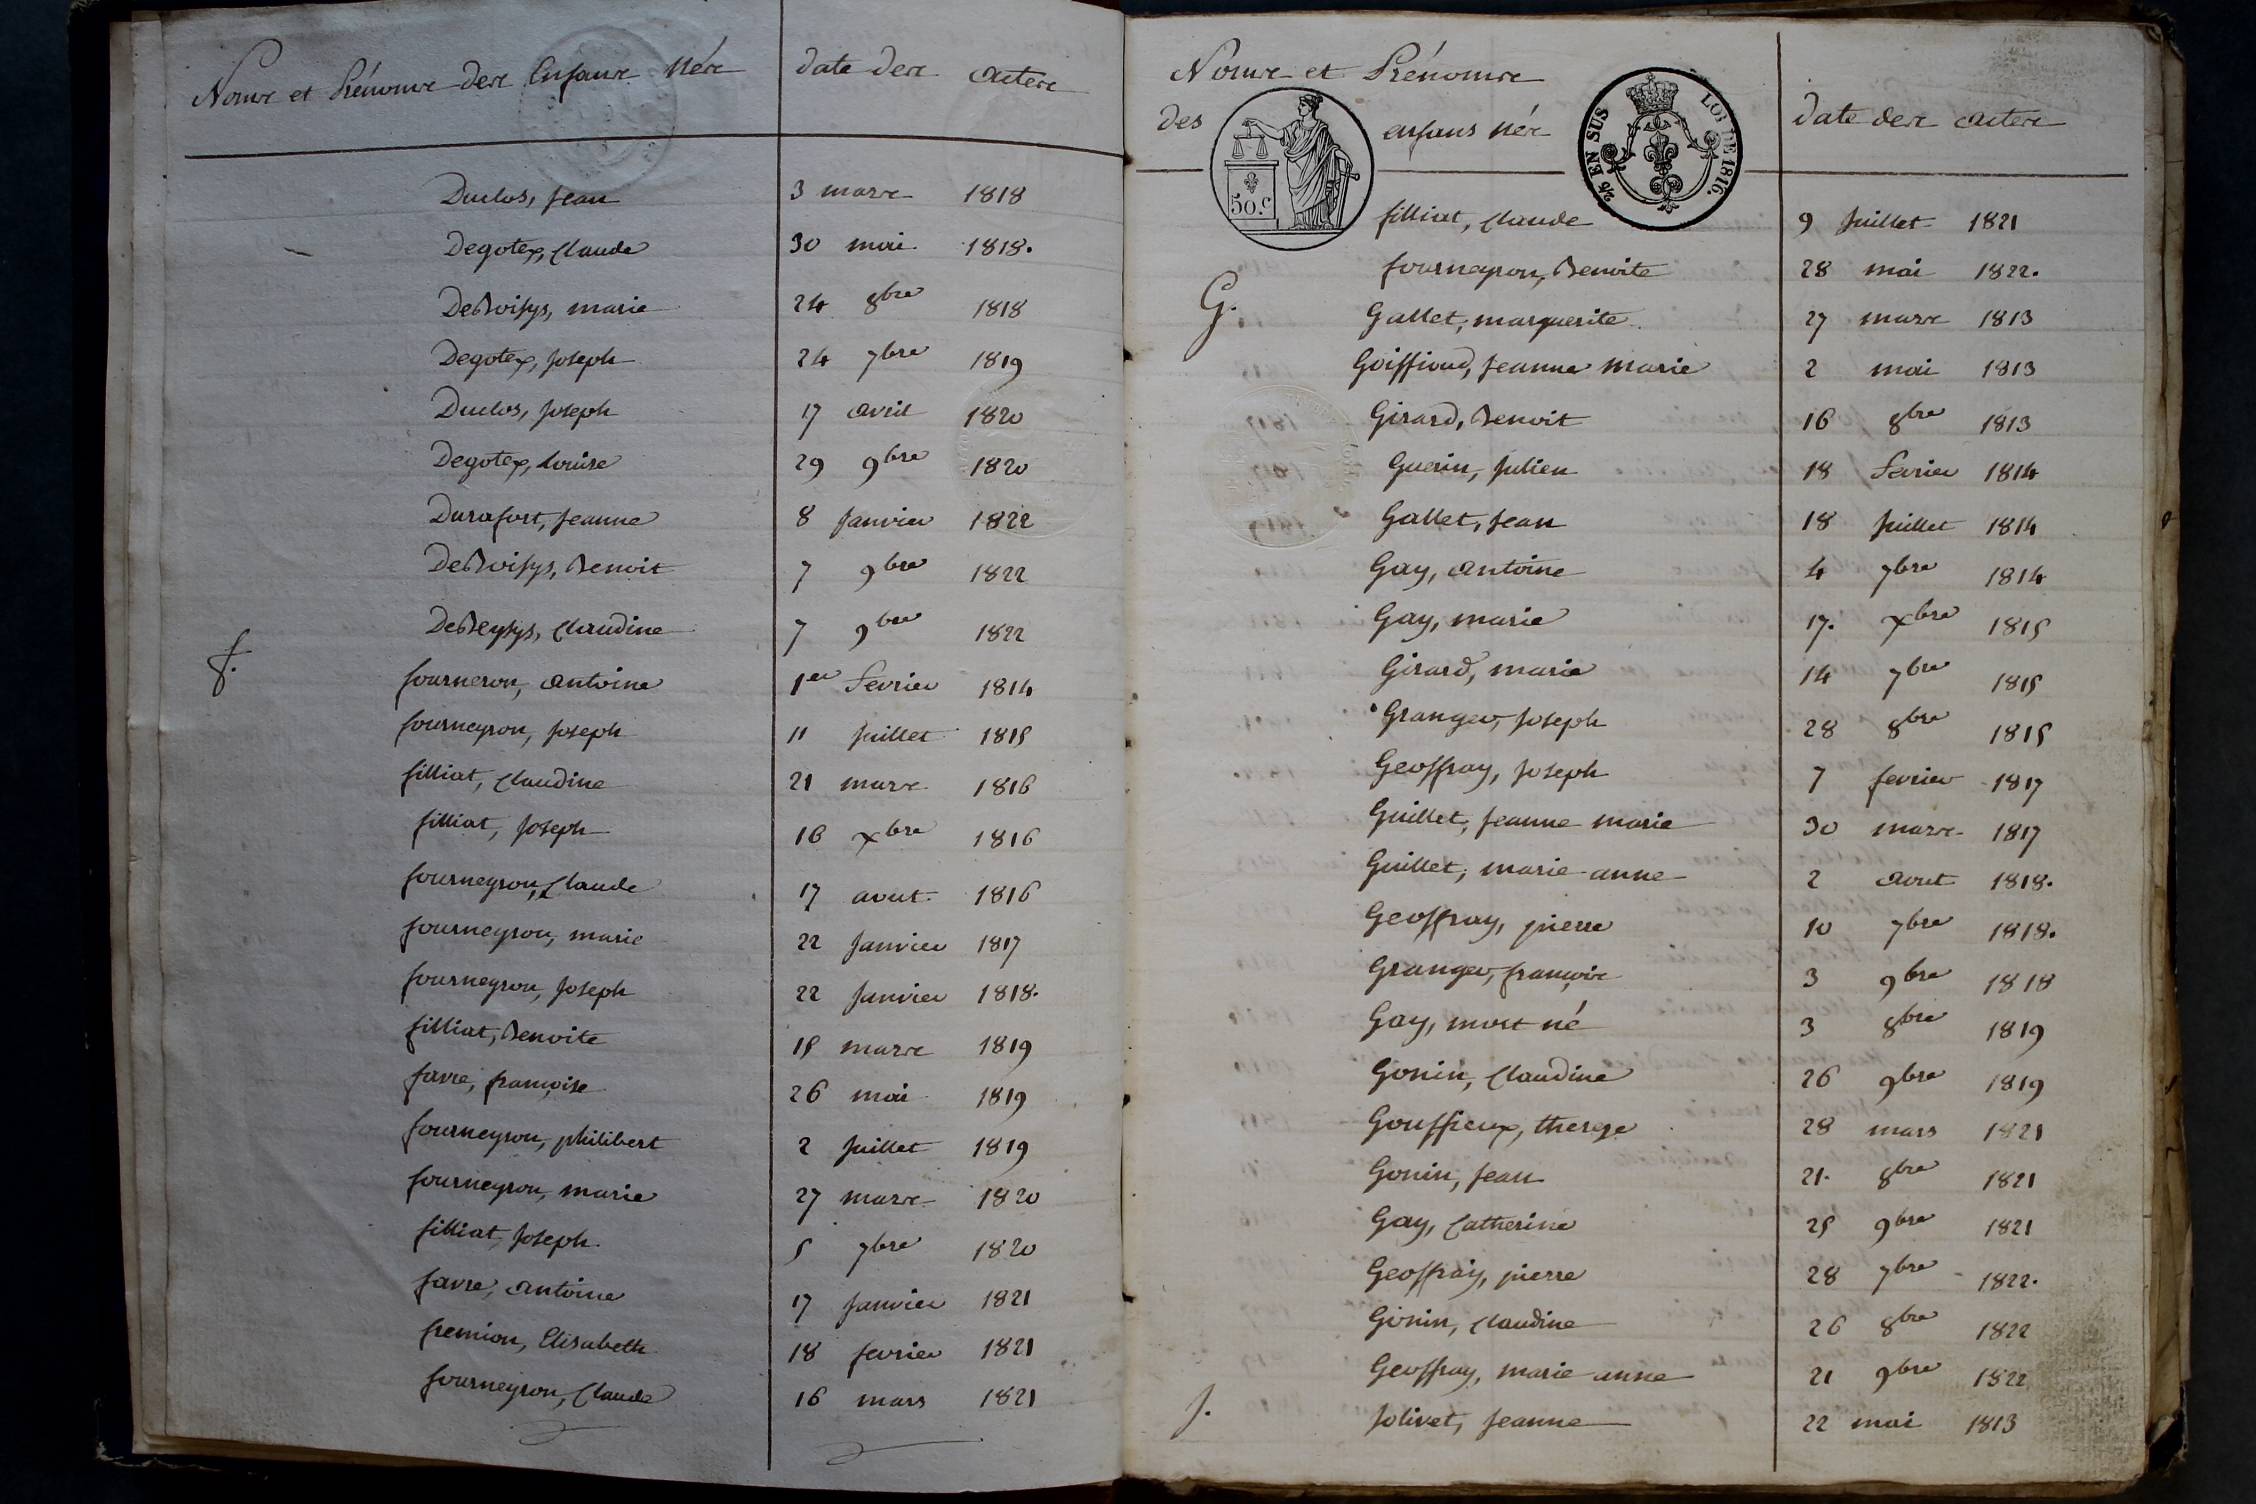 Noms et Prénoms des Enfans Nés date des actes
Duclos, Jean 3 mars 1818
Degotex, Claude 30 mai 1818.
DeBoisys, marie 24 8bre 1818
Degotex, Joseph 24 7bre 1819
Duclos, Joseph 17 avril 1820
Degotex, Louise 29 9bre 1820
Durafort, Jeanne 8 Janvier 1822
DeBoisys, Benoit 7 9bre 1822
Claudine 7 9bre 1822
f. fourneron, antoine 1er fevrier 1814
fourneyron, Joseph 11 Juillet 1815
filliat, Claudine 21 mars 1816
filliat, Joseph 16 xbre 1816
fourneyron, Claude 17 aout 1816
fourneyron, marie 22 Janvier 1817
fourneyron, Joseph 22 Janvier 1818.
filliat, Benoite 15 mars 1819
favre, françoise 26 mai 1819
fourneyron, philibert 2 Juillet 1819
fourneyron, marie 27 mars 1820
filliat, Joseph 5 7bre 1820
favre, antoine 17 Janvier 1821
fremion, Elisabeth 18 fevrier 1821
fourneyron, Claude 16 mars 1821
Noms et Prénoms
des enfans Nés date des actes
50.c
24 EN SUS LOI DE 1816.
filliat, Claude 9 Juillet 1821
fourneyron, Benoite 28 mai 1822.
G. Gallet, marguerite 27 mars 1813
Goiffioud, Jeanne marie 2 mai 1813
Girard, Benoit 16 8bre 1813
Guerin, Julien 18 fevrier 1814
Gallet, Jean 18 Juillet 1814
Gay, antoine 4 7bre 1814
Gay, marie 17. xbre 1815
Girard, marie 14 7bre 1815
Granger, Joseph 28 8bre 1815
Geoffray, Joseph 7 fevrier 1817
Guillet, Jeanne marie 30 mars 1817
Guillet, marie anne 2 aout 1818.
Geoffray, pierre 10 7bre 1818.
Granger, françois 3 9bre 1818
Gay, mort né 3 8bre 1819
Gonin, Claudine 26 9bre 1819
Gouffieux, therese 28 mars 1821
Gonin, Jean 21. 8bre 1821
Gay, Catherine 25 9bre 1821
Geoffray, pierre 28 7bre 1822.
Gonin, Claudine 26 8bre 1822
Geoffray, marie anne 21 9bre 1822
J. Jolivet, Jeanne 22 mai 1813